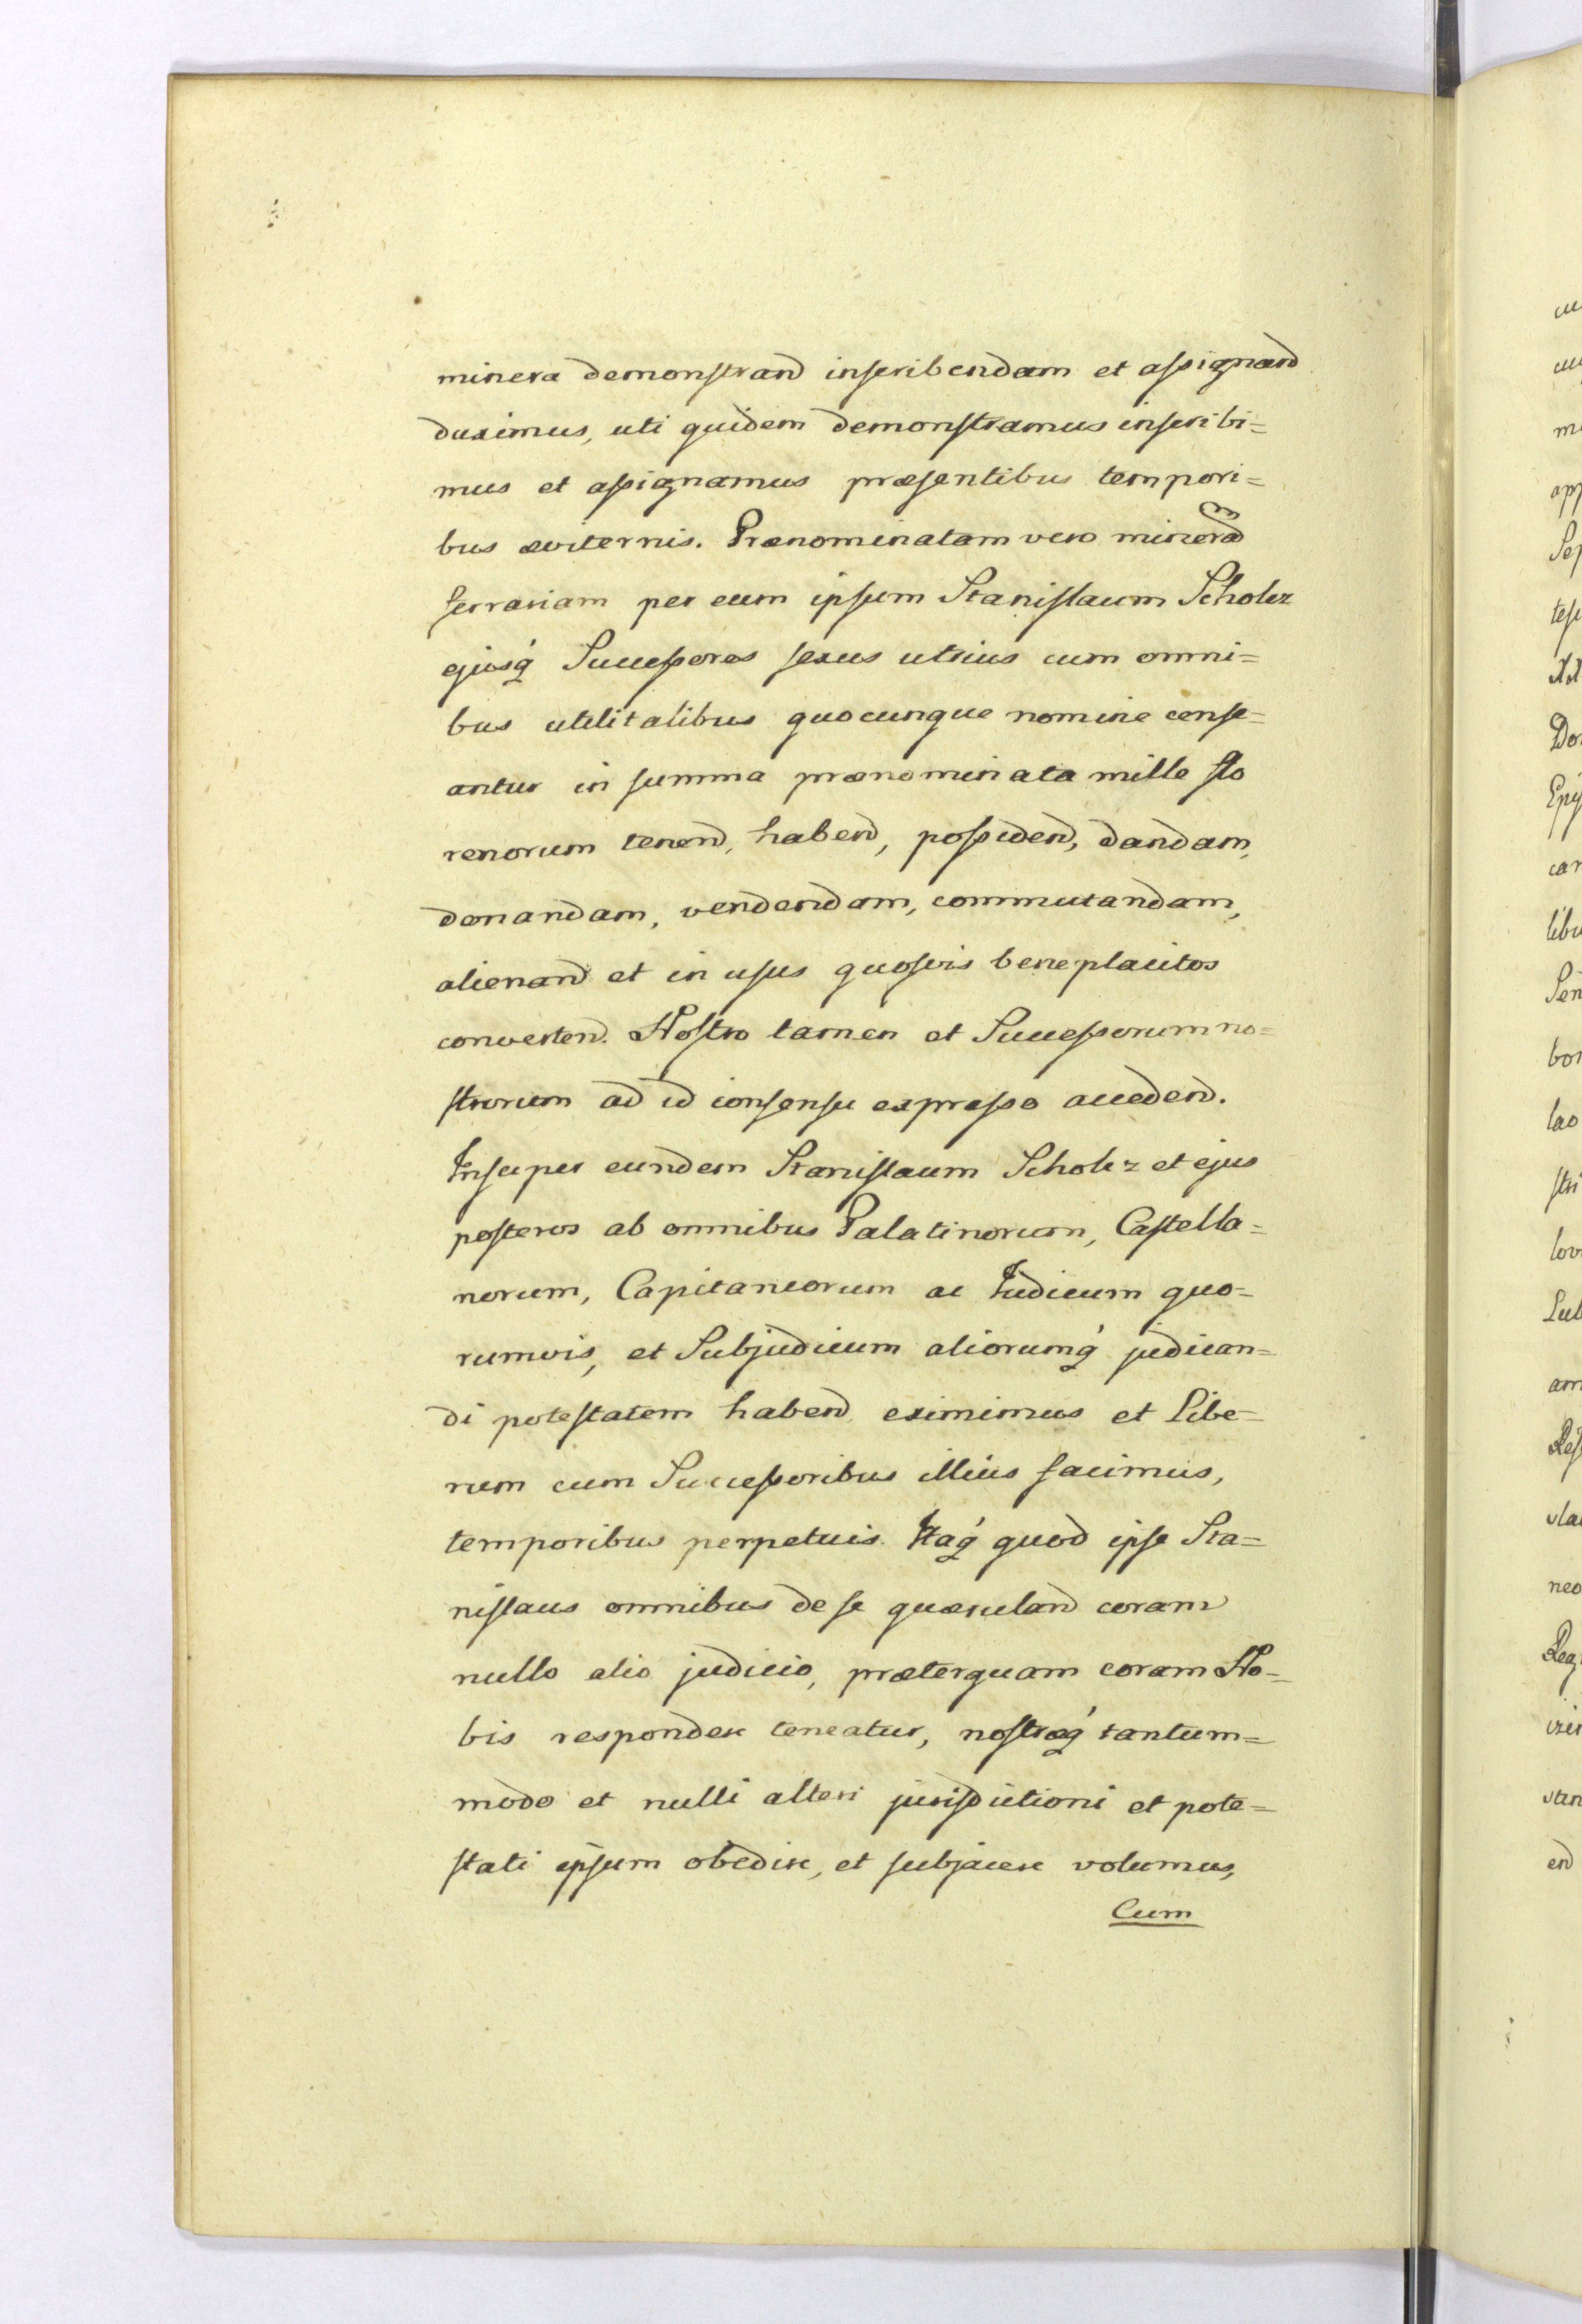 minera demonstrand inscribendam et assignand
duximus, uti quidem demonstramus inscribi=
mus et assignamus præsentibus tempori=
bus æviternis. Prænominatam vero minera
ferrariam per eum ipsum Stanislaum Scholcz
ejusq́ Successores sexus utrius cum omni=
bus utilitatibus quocunque nomine cense=
antur in summa prænominata mille flo
renorum tenend, habend, possidend, dandam,
donandam, vendendam, commutandam,
alienand et in usus quosvis beneplacitos
convertend. Nostro tamen et Successorum no=
strorum ad id consensu expresso accedend.
Insuper eundem Stanislaum Scholcz et ejus
posteros ab omnibus Palatinorum, Castella=
norum, Capitaneorum ac Judicum quo=
rumvis, et Subjudicum aliorumq́ judican=
di potestatem habend eximimus et Libe=
rum cum Successoribus illius facimus,
temporibus perpetuis. Itaq́ quod ipse Sta=
nislaus omnibus de se quæruland coram
nullo alio judicio, præterquam coram No=
bis respondere teneatur, nostræq́ tantum=
modo et nulli alteri jurisdictioni et pote=
stati ipsum obedire, et subjacere volumus,
Cum